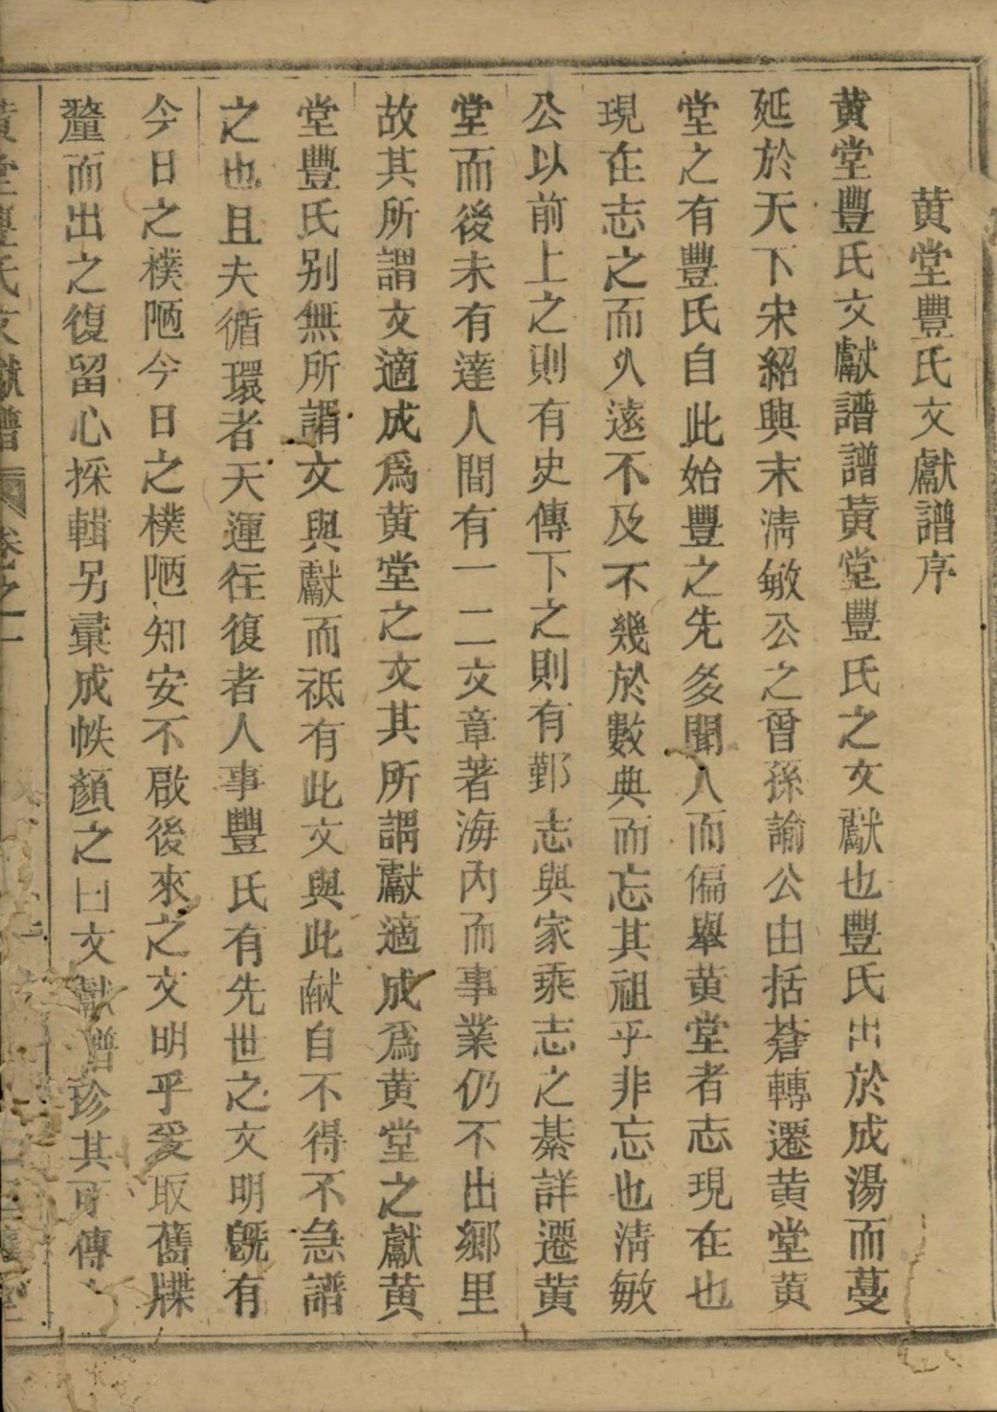 黄堂豐氏文獻譜序
黄堂豐氏文獻譜譜黄堂豐氏之文獻也豐氏出於成湯而蔓
延於天下宋紹興末清敏公之曾孫諭公由括蒼轉遷黄堂黄
堂之有豐氏自此始豐之先多聞人而偏舉黄堂者志現在也
現在志之而久遠不及不幾於數典而忘其祖乎非忘也清敏
公以前上之則有史傳下之則有鄞志與家乘志之綦詳遷黄
堂而後未有達人間有一二文章著海内而事業仍不出鄉里
故其所謂文適成爲黄堂之文其所謂獻適成爲黄堂之獻黄
堂豐氏别無所謂文與獻而祗有此文與此献自不得不急譜
之也且夫循環者天運往復者人事豐氏有先世之文明旣有
今日之樸陋今日之樸陋知安不啟後來之文明乎爰取舊牒
釐而出之復留心採輯另彙成帙顏之曰文獻譜珍其可傳
黄堂豐氏文獻譜 卷之一